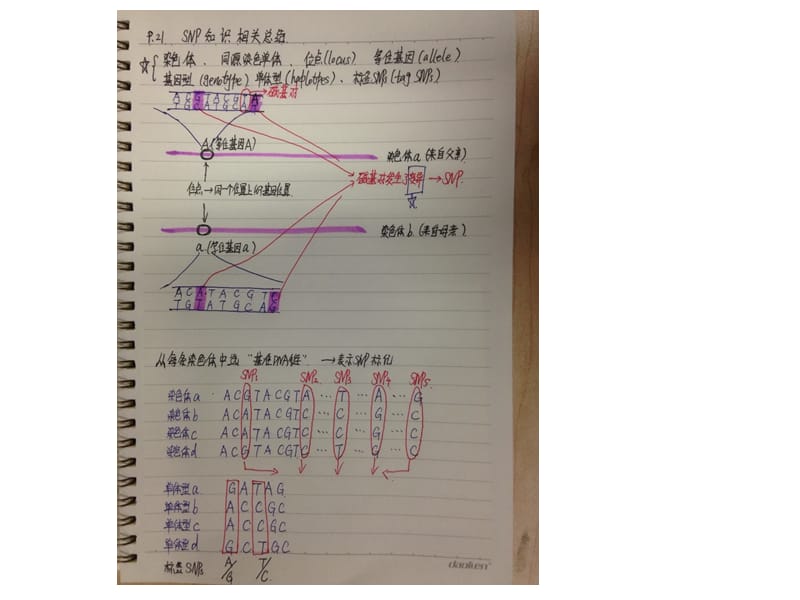 P.21. SNP 知识相关总结
☆{ 染色体、同源染色单体、位点(locus) 等位基因(allele)
基因型(genotype) 单体型(hplotypes)、标签SNPs(tag SNPs)
碱基对
A(等位基因A)
染色体a(来自父亲)
位点→同一个位置上的基因位置
碱基对发生了变异→SNP.
☆
染色体b.(来自母亲)
a.(等位基因a)
A C A T A C G T C
T G T A T G C A G
从每条染色体中选“基准DNA链”. →表示SNP标化
SNP1 SNP2 SNP3 SNP4 SNP5
染色体a: A C G T A C G T A ··· T ··· A ··· G
染色体b A C A T A C G T C ··· C ··· G ··· C
染色体c A C A T A C G T C ··· C ··· G ··· C
染色体d A C G T A C G T C ··· T ··· G ··· C
单体型a G A T A G
单体型b A C C G C
单体型c A C C G C
单体型d G C T G C
标签SNPs A/G T/C
daolien